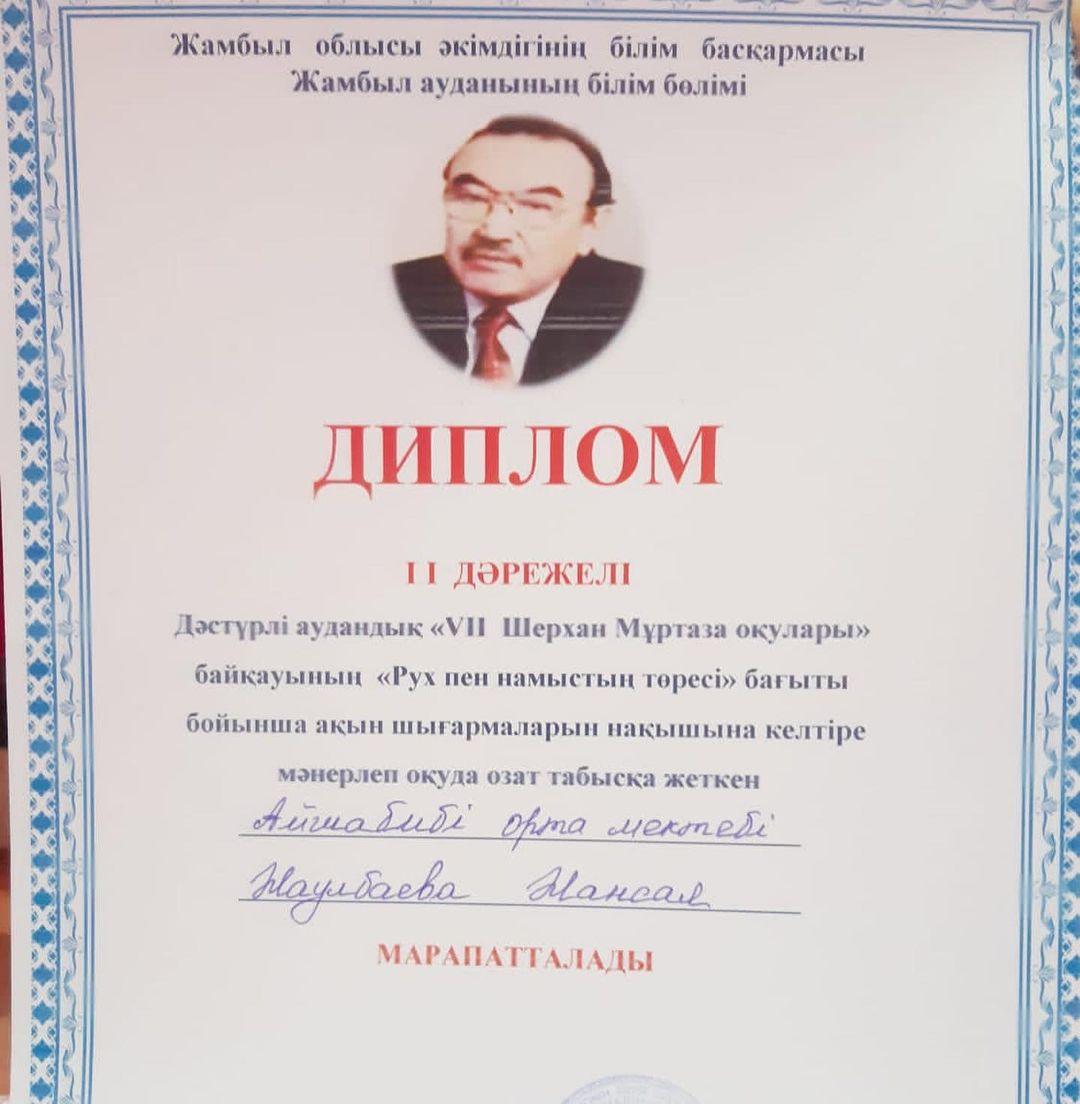 Жамбыл облысы әкімдігінің білім басқармасы
Жамбыл ауданының білім бөлімі
ДИПЛОМ
I I ДӘРЕЖЕЛІ
Дәстүрлі аудандық «VII Шерхан Мұртаза оқулары»
байқауының «Рух пен намыстың төресі» бағыты
бойынша ақын шығармаларын нақышына келтіре
мәнерлеп оқуда озат табысқа жеткен
Айшабибі орта мектебі
Жаулбаева Жансая
МАРАПАТТАЛАДЫ